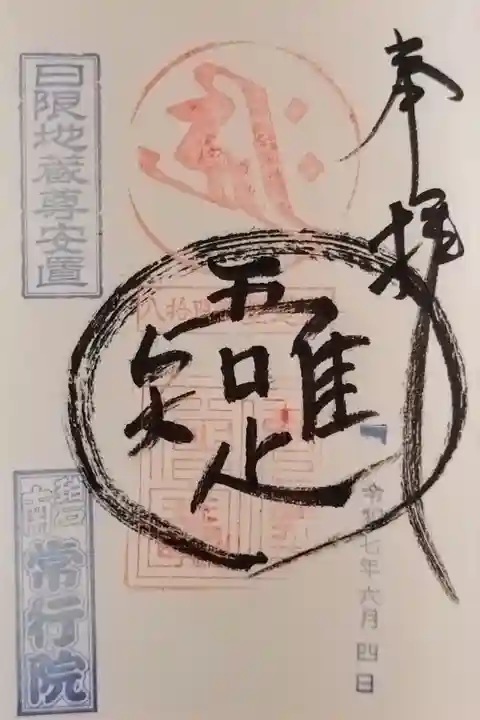 奉拝
吾唯足知
令和七年六月四日
日限地蔵尊安置
碧南
常行院